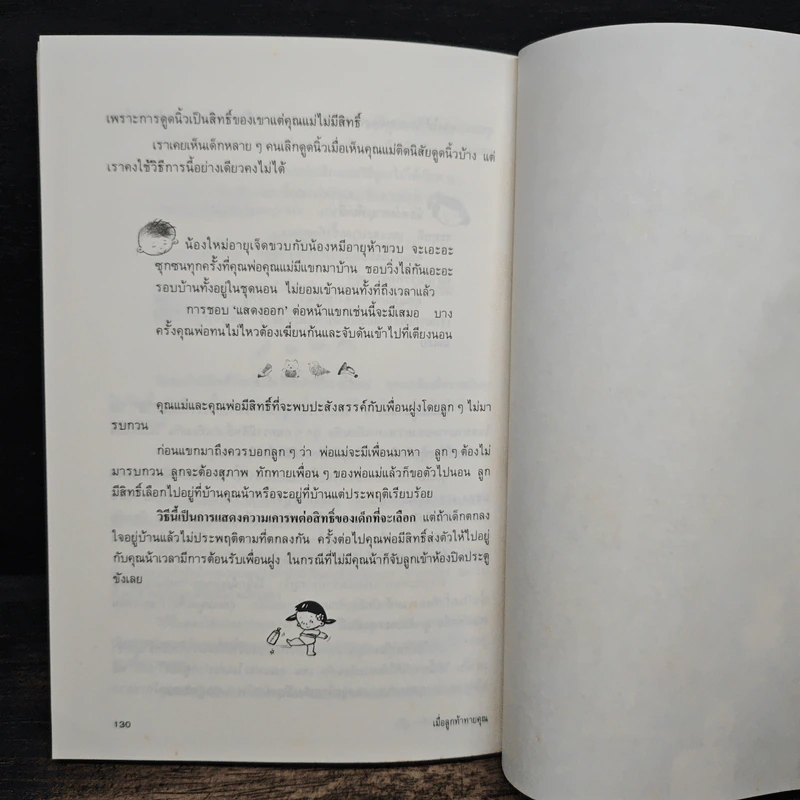 เพราะการดูดนิ้วเป็นสิทธิ์ของเขาแต่คุณแม่ไม่มีสิทธิ์
เราเคยเห็นเด็กหลาย ๆ คนเลิกดูดนิ้วเมื่อเห็นคุณแม่ติดนิสัยดูดนิ้วบ้าง แต่
เราคงใช้วิธีการนี้อย่างเดียวคงไม่ได้
น้องใหม่อายุเจ็ดขวบกับน้องหมีอายุห้าขวบ จะเอะอะ
ซุกซนทุกครั้งที่คุณพ่อคุณแม่มีแขกมาบ้าน ชอบวิ่งไล่กันเอะอะ
รอบบ้านทั้งอยู่ในชุดนอน ไม่ยอมเข้านอนทั้งที่ถึงเวลาแล้ว
การชอบ 'แสดงออก' ต่อหน้าแขกเช่นนี้จะมีเสมอ บาง
ครั้งคุณพ่อทนไม่ไหวต้องเฆี่ยนกันและจับดันเข้าไปที่เตียงนอน
คุณแม่และคุณพ่อมีสิทธิ์ที่จะพบปะสังสรรค์กับเพื่อนฝูงโดยลูก ๆ ไม่มา
รบกวน
ก่อนแขกมาถึงควรบอกลูก ๆ ว่า พ่อแม่จะมีเพื่อนมาหา ลูก ๆ ต้องไม่
มารบกวน ลูกจะต้องสุภาพ ทักทายเพื่อน ๆ ของพ่อแม่แล้วก็ขอตัวไปนอน ลูก
มีสิทธิ์เลือกไปอยู่ที่บ้านคุณน้าหรือจะอยู่ที่บ้านแต่ประพฤติเรียบร้อย
วิธีนี้เป็นการแสดงความเคารพต่อสิทธิ์ของเด็กที่จะเลือก แต่ถ้าเด็กตกลง
ใจอยู่บ้านแล้วไม่ประพฤติตามที่ตกลงกัน ครั้งต่อไปคุณพ่อมีสิทธิ์ส่งตัวให้ไปอยู่
กับคุณน้าเวลามีการต้อนรับเพื่อนฝูง ในกรณีที่ไม่มีคุณน้าก็จับลูกเข้าห้องปิดประตู
ขังเลย
130
เมื่อลูกท้าทายคุณ